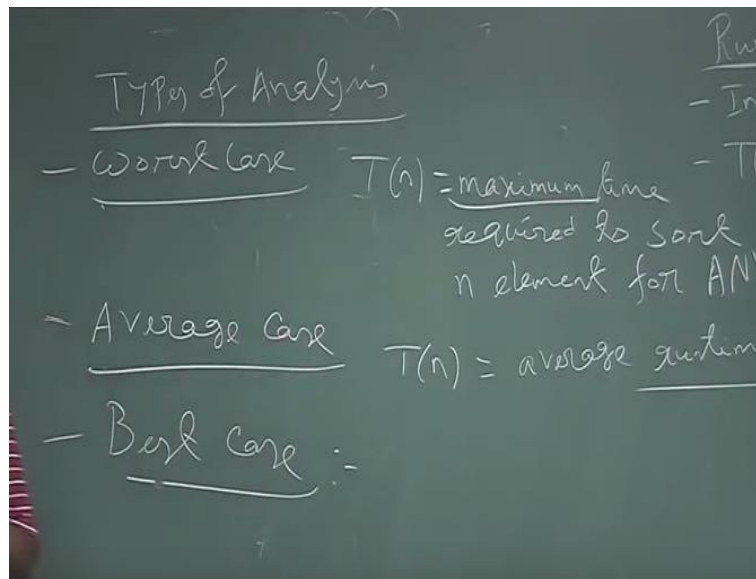 Types of Analysis
- Worst Case T(n) = maximum time
required to sort
n element for ANY
- Average Case T(n) = average runtime
- Best Case :-
- In
- T